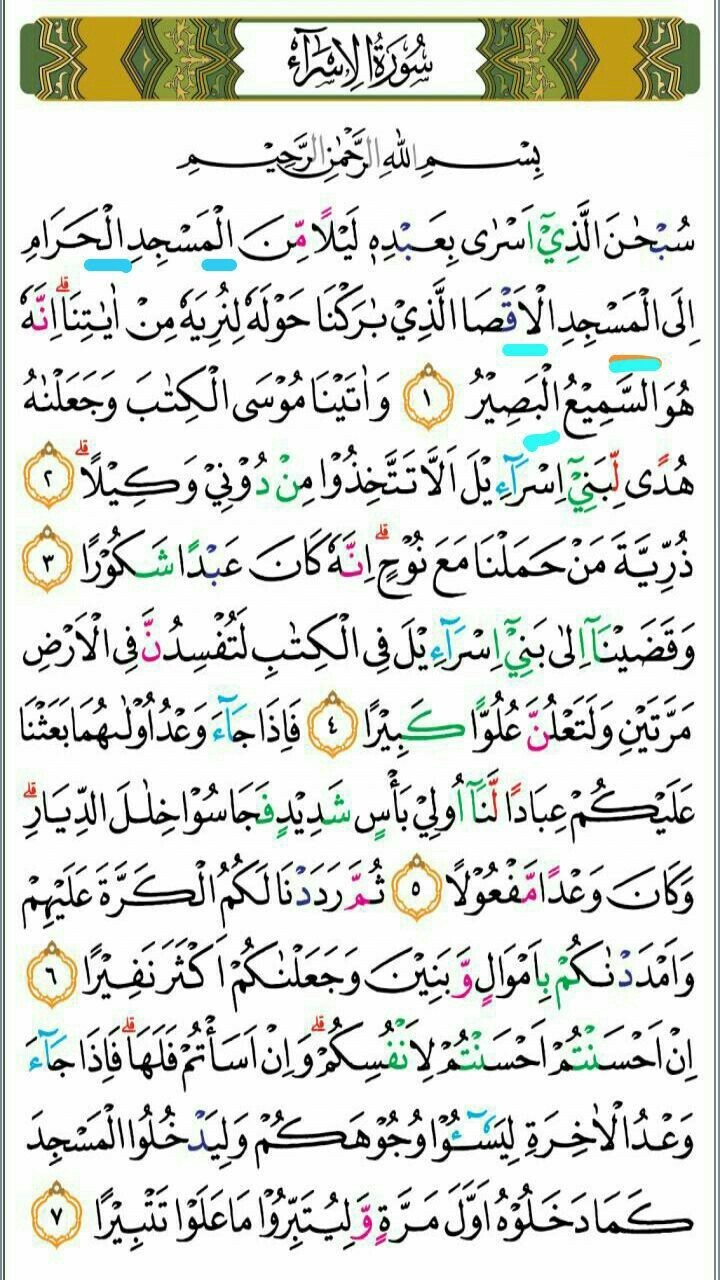 سُوْرَةُ الْاِسْرَآءِ
بِسْمِ اللّٰهِ الرَّحْمٰنِ الرَّحِيْمِ
سُبْحٰنَ الَّذِيْٓ اَسْرٰى بِعَبْدِهٖ لَيْلًا مِّنَ الْمَسْجِدِ الْحَرَامِ
اِلَى الْمَسْجِدِ الْاَقْصَا الَّذِيْ بٰرَكْنَا حَوْلَهٗ لِنُرِيَهٗ مِنْ اٰيٰتِنَاۗ اِنَّهٗ
هُوَ السَّمِيْعُ الْبَصِيْرُ ۝١ وَاٰتَيْنَا مُوْسَى الْكِتٰبَ وَجَعَلْنٰهُ
هُدًى لِّبَنِيْٓ اِسْرَآءِيْلَ اَلَّا تَتَّخِذُوْا مِنْ دُوْنِيْ وَكِيْلًاۗ ۝٢
ذُرِّيَّةَ مَنْ حَمَلْنَا مَعَ نُوْحٍۗ اِنَّهٗ كَانَ عَبْدًا شَكُوْرًا ۝٣
وَقَضَيْنَآ اِلٰى بَنِيْٓ اِسْرَآءِيْلَ فِى الْكِتٰبِ لَتُفْسِدُنَّ فِى الْاَرْضِ
مَرَّتَيْنِ وَلَتَعْلُنَّ عُلُوًّا كَبِيْرًا ۝٤ فَاِذَا جَآءَ وَعْدُ اُوْلٰىهُمَا بَعَثْنَا
عَلَيْكُمْ عِبَادًا لَّنَآ اُولِيْ بَأْسٍ شَدِيْدٍ فَجَاسُوْا خِلٰلَ الدِّيَارِۗ
وَكَانَ وَعْدًا مَّفْعُوْلًا ۝٥ ثُمَّ رَدَدْنَا لَكُمُ الْكَرَّةَ عَلَيْهِمْ
وَاَمْدَدْنٰكُمْ بِاَمْوَالٍ وَّبَنِيْنَ وَجَعَلْنٰكُمْ اَكْثَرَ نَفِيْرًا ۝٦
اِنْ اَحْسَنْتُمْ اَحْسَنْتُمْ لِاَنْفُسِكُمْۗ وَاِنْ اَسَأْتُمْ فَلَهَاۗ فَاِذَا جَآءَ
وَعْدُ الْاٰخِرَةِ لِيَسٗۤـُٔوْا وُجُوْهَكُمْ وَلِيَدْخُلُوا الْمَسْجِدَ
كَمَا دَخَلُوْهُ اَوَّلَ مَرَّةٍ وَّلِيُتَبِّرُوْا مَا عَلَوْا تَتْبِيْرًا ۝٧